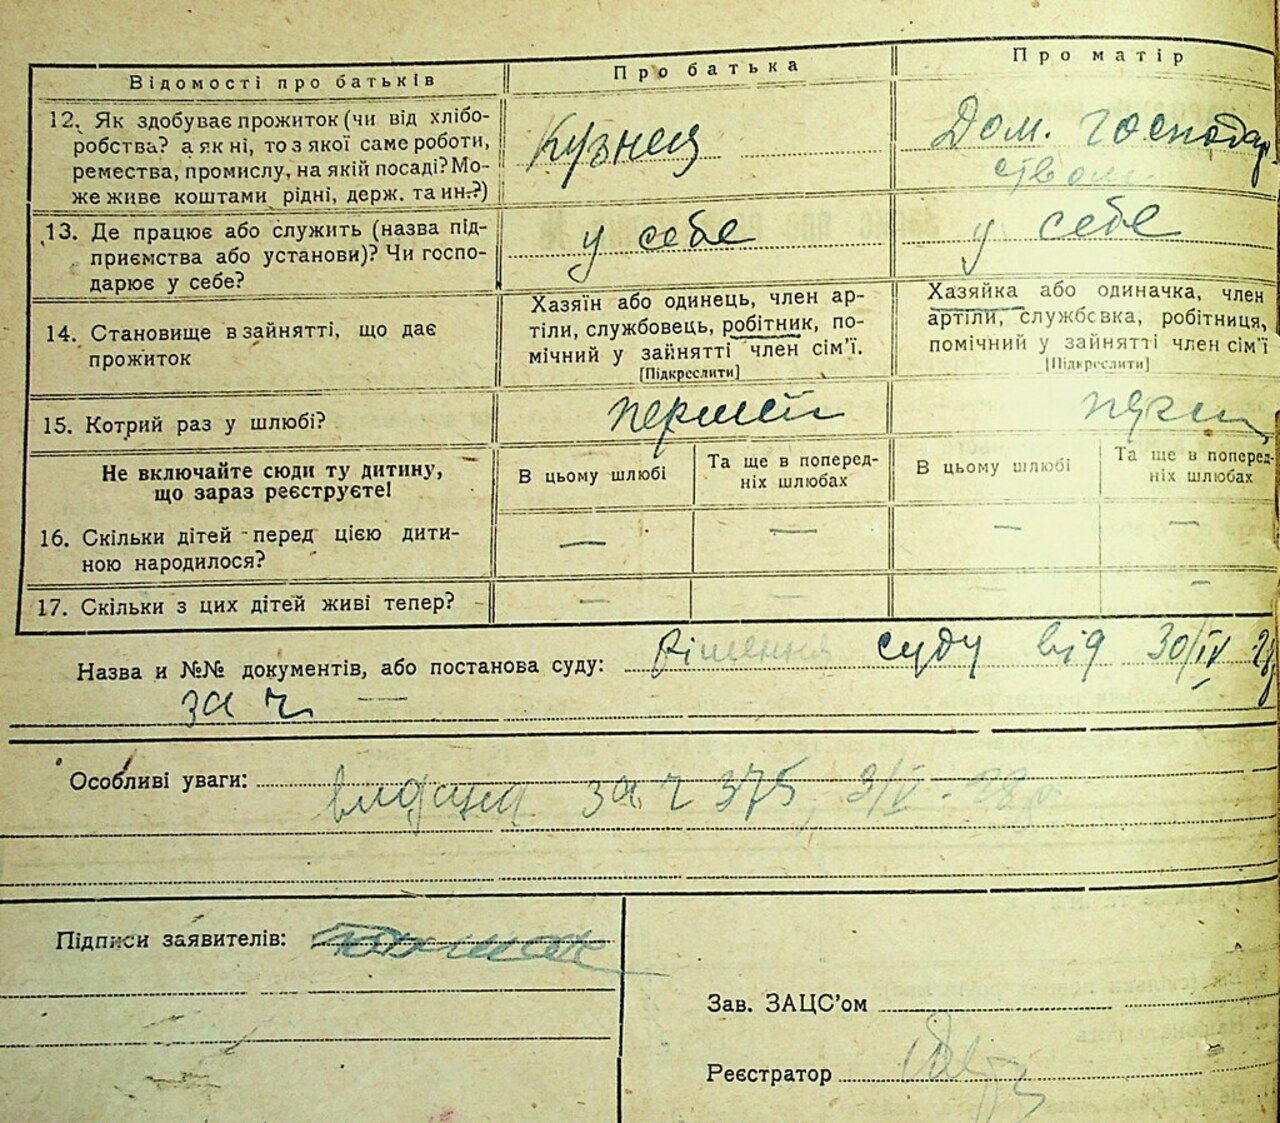 Відомості про батьків
Про батька
Про матір
12. Як здобуває прожиток (чи від хлібо-
робства? а як ні, то з якої саме роботи,
ремества, промислу, на якій посаді? Мо-
же живе коштами рідні, держ. та ин.?)
Кузнец
Дом. господар
ством
13. Де працює або служить (назва під-
приємства або установи)? Чи госпо-
дарює у себе?
у себе
у себе
14. Становище в зайнятті, що дає
прожиток
Хазяїн або одинець, член ар-
тіли, службовець, робітник, по-
мічний у зайнятті член сім'ї.
[Підкреслити]
Хазяйка або одиначка, член
артіли, службовка, робітниця,
помічний у зайнятті член сім'ї
[Підкреслити]
15. Котрий раз у шлюбі?
первый
Не включайте сюди ту дитину,
що зараз реєструєте!
В цьому шлюбі
Та ще в поперед-
ніх шлюбах
В цьому шлюбі
Та ще в поперед-
ніх шлюбах
16. Скільки дітей перед цією дити-
ною народилося?
— — — —
17. Скільки з цих дітей живі тепер?
— — — —
Назва и №№ документів, або постанова суду: Рішення суду від 30/IV 28р
за ч. —
Особливі уваги: видана за ч 375, 3/V - 28р
Підписи заявителів:
Зав. ЗАЦС'ом
Реєстратор